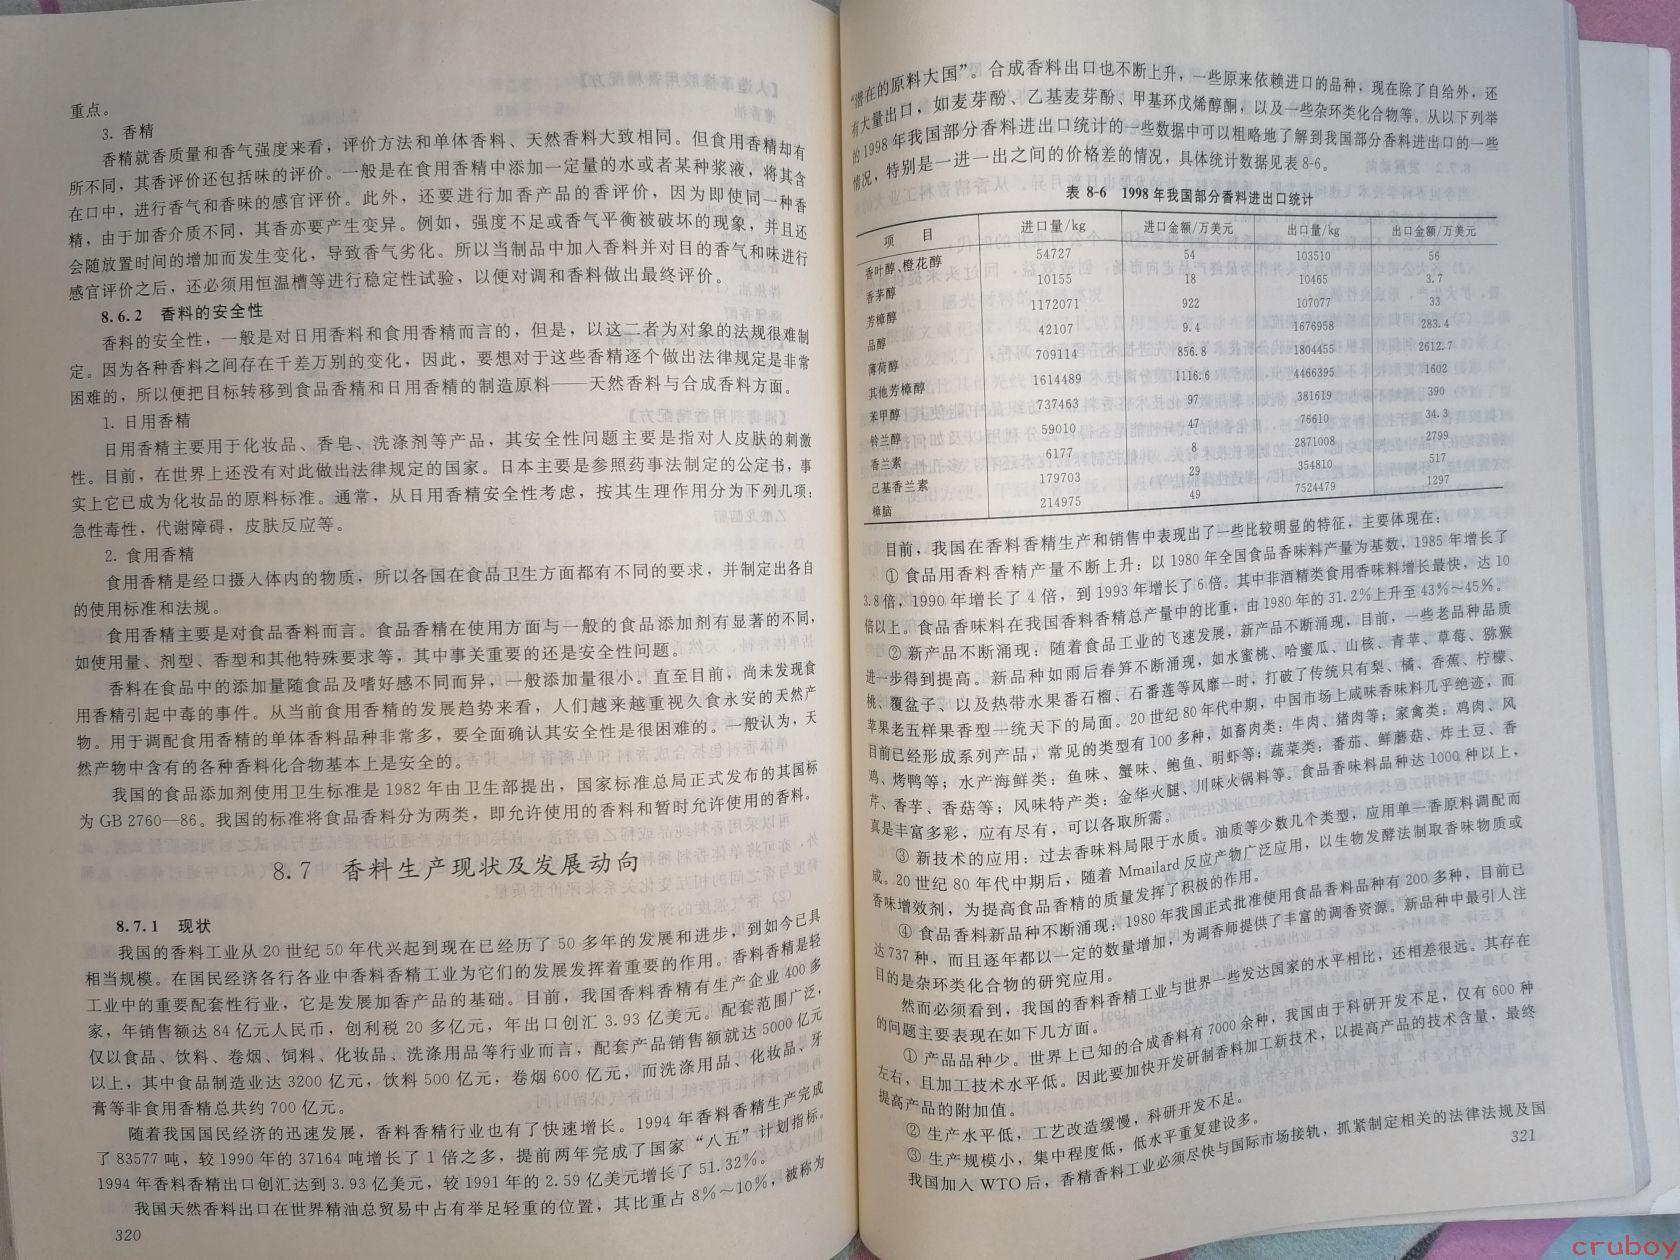 重点。
3. 香精
香精就香质量和香气强度来看，评价方法和单体香料、天然香料大致相同。但食用香精却有
所不同，其香评价还包括味的评价。一般是在食用香精中添加一定量的水或者某种浆液，将其含
在口中，进行香气和香味的感官评价。此外，还要进行加香产品的香评价，因为即使同一种香
精，由于加香介质不同，其香亦要产生变异。例如，强度不足或香气平衡被破坏的现象，并且还
会随放置时间的增加而发生变化，导致香气劣化。所以当制品中加入香料并对目的香气和味进行
感官评价之后，还必须用恒温槽等进行稳定性试验，以便对调和香料做出最终评价。
8.6.2 香料的安全性
香料的安全性，一般是对日用香料和食用香精而言的，但是，以这二者为对象的法规很难制
定。因为各种香料之间存在千差万别的变化，因此，要想对于这些香精逐个做出法律规定是非常
困难的，所以便把目标转移到食品香精和日用香精的制造原料——天然香料与合成香料方面。
1. 日用香精
日用香精主要用于化妆品、香皂、洗涤剂等产品，其安全性问题主要是指对人皮肤的刺激
性。目前，在世界上还没有对此做出法律规定的国家。日本主要是参照药事法制定的公定书，事
实上它已成为化妆品的原料标准。通常，从日用香精安全性考虑，按其生理作用分为下列几项：
急性毒性，代谢障碍，皮肤反应等。
2. 食用香精
食用香精是经口摄人体内的物质，所以各国在食品卫生方面都有不同的要求，并制定出各自
的使用标准和法规。
食用香精主要是对食品香料而言。食品香精在使用方面与一般的食品添加剂有显著的不同，
如使用量、剂型、香型和其他特殊要求等，其中事关重要的还是安全性问题。
香料在食品中的添加量随食品及嗜好感不同而异，一般添加量很小。直至目前，尚未发现食
用香精引起中毒的事件。从当前食用香精的发展趋势来看，人们越来越重视久食永安的天然产
物。用于调配食用香精的单体香料品种非常多，要全面确认其安全性是很困难的。一般认为，天
然产物中含有的各种香料化合物基本上是安全的。
我国的食品添加剂使用卫生标准是 1982 年由卫生部提出，国家标准总局正式发布的其国标
为 GB 2760—86。我国的标准将食品香料分为两类，即允许使用的香料和暂时允许使用的香料。
8.7 香料生产现状及发展动向
8.7.1 现状
我国的香料工业从 20 世纪 50 年代兴起到现在已经历了 50 多年的发展和进步，到如今已具
相当规模。在国民经济各行各业中香料香精工业为它们的发展发挥着重要的作用。香料香精是轻
工业中的重要配套性行业，它是发展加香产品的基础。目前，我国香料香精有生产企业 400 多
家，年销售额达 84 亿元人民币，创利税 20 多亿元，年出口创汇 3.93 亿美元。配套范围广泛，
仅以食品、饮料、卷烟、饲料、化妆品、洗涤用品等行业而言，配套产品销售额就达 5000 亿元
以上，其中食品制造业达 3200 亿元，饮料 500 亿元，卷烟 600 亿元，而洗涤用品、化妆品、牙
膏等非食用香精总共约 700 亿元。
随着我国国民经济的迅速发展，香料香精行业也有了快速增长。1994 年香料香精生产完成
了 83577 吨，较 1990 年的 37164 吨增长了 1 倍之多，提前两年完成了国家“八五”计划指标。
1994 年香料香精出口创汇达到 3.93 亿美元，较 1991 年的 2.59 亿美元增长了 51.32%。
我国天然香料出口在世界精油总贸易中占有举足轻重的位置，其比重占 8%～10%，被称为
320
“潜在的原料大国”。合成香料出口也不断上升，一些原来依赖进口的品种，现在除了自给外，还
有大量出口，如麦芽酚、乙基麦芽酚、甲基环戊烯醇酮，以及一些杂环类化合物等。从以下列举
的 1998 年我国部分香料进出口统计的一些数据中可以粗略地了解到我国部分香料进出口的一些
情况，特别是一进一出之间的价格差的情况，具体统计数据见表 8-6。
表 8-6 1998 年我国部分香料进出口统计
项 目 进口量/kg 进口金额/万美元 出口量/kg 出口金额/万美元
香叶醇、橙花醇 54727 54 103510 56
香茅醇 10155 18 10465 3.7
芳樟醇 1172071 922 107077 33
品醇 42107 9.4 1676958 283.4
薄荷醇 709114 856.8 1804455 2612.7
其他芳樟醇 1614489 1116.6 4466395 1602
苯甲醇 737463 97 381619 390
铃兰醇 59010 47 76610 34.3
香兰素 6177 8 2871008 2799
己基香兰素 179703 29 354810 517
樟脑 214975 49 7524479 1297
目前，我国在香料香精生产和销售中表现出了一些比较明显的特征，主要体现在：
① 食品用香料香精产量不断上升：以 1980 年全国食品香味料产量为基数，1985 年增长了
3.8 倍，1990 年增长了 4 倍，到 1993 年增长了 6 倍。其中非酒精类食用香味料增长最快，达 10
倍以上。食品香味料在我国香料香精总产量中的比重，由 1980 年的 31.2%上升至 43%～45%。
② 新产品不断涌现：随着食品工业的飞速发展，新产品不断涌现，目前，一些老品种品质
进一步得到提高。新品种如雨后春笋不断涌现，如水蜜桃、哈蜜瓜、山核、青苹、草莓、猕猴
桃、覆盆子、以及热带水果番石榴、石番莲等风靡一时，打破了传统只有梨、橘、香蕉、柠檬、
苹果老五样果香型一统天下的局面。20 世纪 80 年代中期，中国市场上咸味香味料几乎绝迹，而
目前已经形成系列产品，常见的类型有 100 多种，如畜肉类：牛肉、猪肉等；家禽类：鸡肉、风
鸡、烤鸭等；水产海鲜类：鱼味、蟹味、鲍鱼、明虾等；蔬菜类：番茄、鲜蘑菇、炸土豆、香
芹、香芋、香菇等；风味特产类：金华火腿、川味火锅料等。食品香味料品种达 1000 种以上，
真是丰富多彩，应有尽有，可以各取所需。
③ 新技术的应用：过去香味料局限于水质。油质等少数几个类型，应用单一香原料调配而
成。20 世纪 80 年代中期后，随着 Mmailard 反应产物广泛应用，以生物发酵法制取香味物质或
香味增效剂，为提高食品香精的质量发挥了积极的作用。
④ 食品香料新品种不断涌现：1980 年我国正式批准使用食品香料品种有 200 多种，目前已
达 737 种，而且逐年都以一定的数量增加，为调香师提供了丰富的调香资源。新品种中最引人注
目的是杂环类化合物的研究应用。
然而必须看到，我国的香料香精工业与世界一些发达国家的水平相比，还相差很远。其存在
的问题主要表现在如下几方面。
① 产品品种少。世界上已知的合成香料有 7000 余种，我国由于科研开发不足，仅有 600 种
左右，且加工技术水平低。因此要加快开发研制香料加工新技术，以提高产品的技术含量，最终
提高产品的附加值。
② 生产水平低，工艺改造缓慢，科研开发不足。
③ 生产规模小，集中程度低，低水平重复建设多。
我国加入 WTO 后，香精香料工业必须尽快与国际市场接轨，抓紧制定相关的法律法规及国
321
cruboy